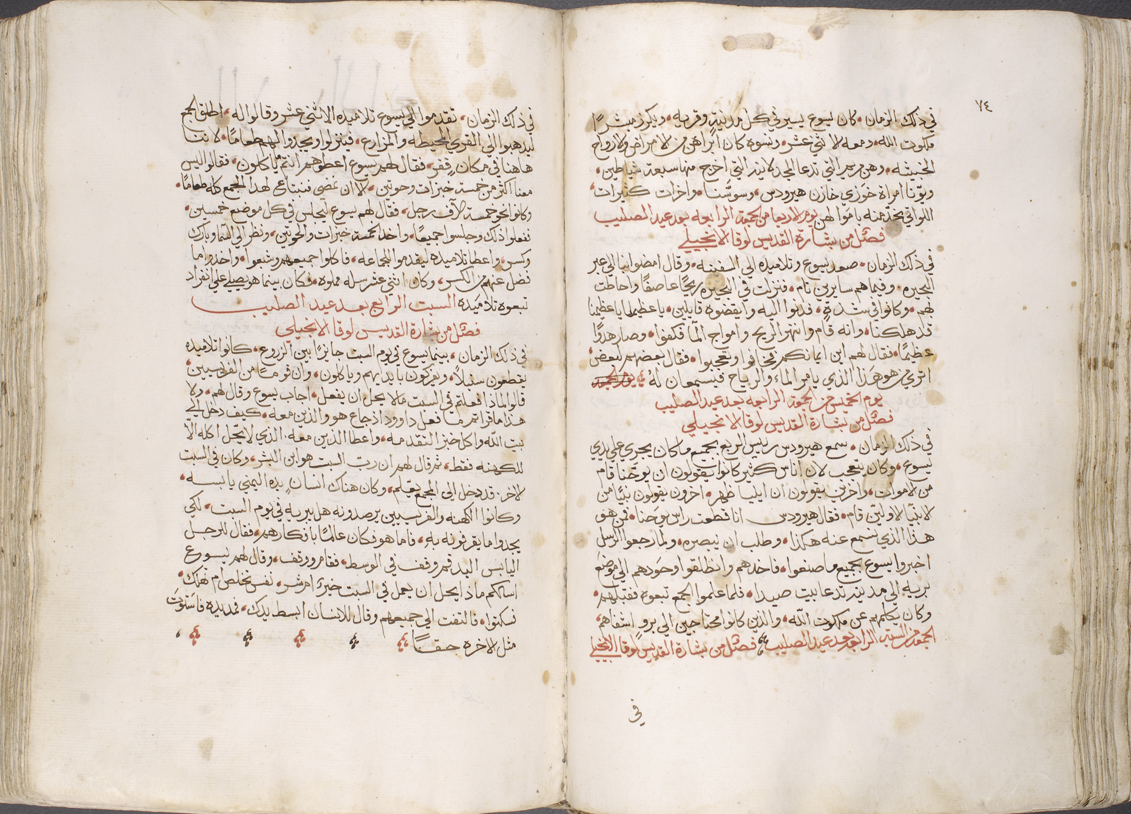 ٧٤
في ذلك الزمان كان يسوع يسير في كل مدينة وقرية ويكرز مبشرا
ملكوت الله ومعه الاثني عشر ونسوة كان ابراهن من الامراض والارواح
الخبيثة وهن مريم التي تدعا المجدلانية التي اخرج منها سبعة شياطين
ويونا امراة خوزي خازن هيرودس وسوسنا واخرات كثيرات
اللواتي يخدمنه باموالهن يوم الاربعا من الجمعة الرابعة بعد عيد الصليب
فصل من بشارة القديس لوقا الانجيلي
في ذلك الزمان صعد يسوع وتلاميذه الى السفينة وقال امضوا بنا الى عبر
البحيرة وفيما هم سايرين نام فنزلت في البحيرة ريحا عاصفا واحاطت
بهم وكانوا في شدة فدنوا اليه وايقضوه قايلين يا عظيمنا يا عظيمنا
قد هلكنا وانه قام وانتهر الريح وامواج الما فكفوا وصار هدوا
عظيما فقال لهم اين ايمانكم فخافوا وتعجبوا وقال بعضهم لبعض
اترى من هو هذا الذي يامر الماء والرياح فيسمعان له يوم الجمعة
يوم الخميس من الجمعة الرابعة بعد عيد الصليب
فصل من بشارة القديس لوقا الانجيلي
في ذلك الزمان سمع هيرودس رييس الربع بجميع ما كان يجري على يدي
يسوع وكان يتعجب لان اناس كثير كانوا يقولون ان يوحنا قام
من الاموات واخرين يقولون ان ايليا ظهر اخرون يقولون نبيا من
الانبيا الاولين قام فقال هيرودس انا قطعت راس يوحنا فمن هو
هذا الذي نسمع عنه هكذا وطلب ان يبصره ولما رجعوا الرسل
اخبروا يسوع بجميع ما صنعوا فاخذهم وانطلقوا وحدهم الى موضع
برية الى مدينة تدعا بيت صيدا فلما علموا الجمع تبعوه فقبلهم
وكان يكلمهم عن ملكوت الله والذين كانوا محتاجين الى برو اشفاهم
الجمعة من السبة الرابعة بعد عيد الصليب فصل من بشارة القديس لوقا الانجيلي
في
في ذلك الزمان تقدموا الى يسوع تلاميذه الاثني عشر وقالوا له اطلق الجمع
ليذهبوا الى القرى المحيطة والمزارع فينزلوا ويجدوا لهم طعاما لاننا
هاهنا في مكان قفر فقال لهم يسوع اعطوهم انتم ياكلون فقالوا ليس
معنا اكثر من خمسة خبزات وحوتين الا ان نمضي فنبتاع لهذا الجمع كله طعاما
وكانوا نحو خمسة الاف رجل فقال لهم يسوع تجلس في كل موضع خمسين
ففعلوا ذلك وجلسوا جميعا واخذ الخمسة خبزات والحوتين ونظر الى السما وبارك
وكسر واعطا تلاميذه ليقدموا للجماعة فاكلوا اجميعهم وشبعوا واخذوا ما
فضل عنهم من الكسر وكان اثنتي عشر سلة مملوة وكان بينما هو يصلي على انفراد
تبعوه تلاميذه السبت الرابع بعد عيد الصليب
فصل من بشارة القديس لوقا الانجيلي
في ذلك الزمان بينما يسوع في يوم السبت جايزا بين الزروع كانوا تلاميذه
يقطعون سنبلا ويفركون بايديهم وياكلون وان قوما من الفريسيين
قالوا لماذا تفعلون في السبت ما لا يحل ان يفعل اجاب يسوع وقال لهم ولا
هذا ما قراتم ما فعل داوود اذ جاع هو والذين معه كيف دخل الى
بيت الله واكل خبز التقدمة واعطا الذين معه الذي لا يحل اكله الا
للكهنة فقط ثم قال لهم ان رب السبت هو ابن البشر وكان في السبت
الاخر قد دخل الى المجمع يعلم وكان هناك انسان يده اليمني يابسة
وكانوا الكهنة والفريسيين يرصدونه هل يبريه في يوم السبت لكي
يجدوا ما يقرفونه به فاما هو فكان عالما بافكارهم فقال للرجل
اليابس اليد قم وقف في الوسط فقام ووقف وقال لهم يسوع
اسالكم ماذا يحل ان يعمل في السبت خيرا ام شر نفس تخلص ام تهلك
فسكتوا فالتفت الى جميعهم وقال للانسان ابسط يدك فمد يده فاستوت
مثل الاخرة حقا